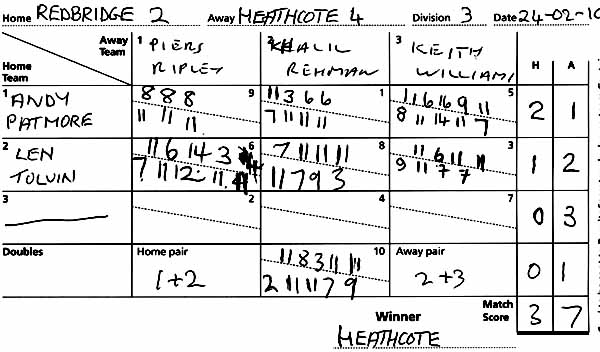 Home REDBRIDGE 2 Away HEATHCOTE 4 Division 3 Date 24-02-10
Away Team
Home Team
1 PIERS RIPLEY
2 KHALIL REHMAN
3 KEITH WILLIAMS
H A
1 ANDY PATMORE
8 8 8 9
11 11 11
11 3 6 6 1
7 11 11 11
11 6 16 9 11 5
8 11 14 11 7
2 1
2 LEN TOLVIN
11 6 14 3 6
7 11 12 11
7 11 11 11 8
11 7 9 3
11 6 11 11 3
9 11 7 7
1 2
3
2
4
7
0 3
Doubles
Home pair
1+2
10
11 8 3 11 11
2 11 11 7 9
Away pair
2+3
0 1
Winner
HEATHCOTE
Match Score
3 7